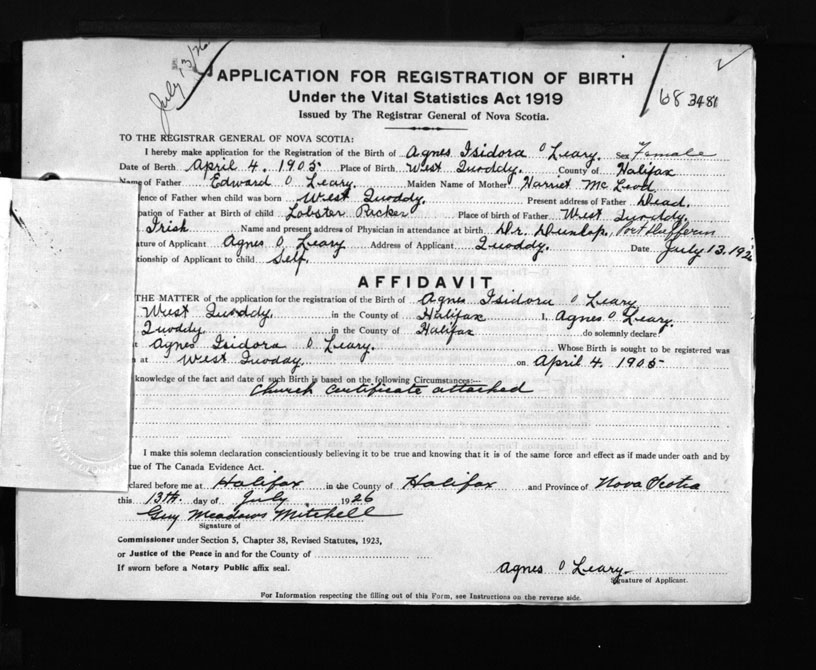 July 13/26
683481
APPLICATION FOR REGISTRATION OF BIRTH
Under the Vital Statistics Act 1919
Issued by The Registrar General of Nova Scotia.
TO THE REGISTRAR GENERAL OF NOVA SCOTIA:
I hereby make application for the Registration of the Birth of Agnes Isidora O Leary. Sex Female
Date of Berth April 4. 1905. Place of Birth West Quoddy. County of Halifax
Name of Father Edward O Leary. Maiden Name of Mother Harriet Mc Leod
ence of Father when child was born West Quoddy. Present address of Father Dead.
pation of Father at Birth of child Lobster Packer Place of birth of Father West Quoddy.
Irish Name and present address of Physician in attendance at birth Dr. Dunlop, Port Dufferin
ature of Applicant Agnes O Leary Address of Applicant Quoddy. Date July 13. 192
tionship of Applicant to child Self.
AFFIDAVIT
THE MATTER of the application for the registration of the Birth of Agnes Isidora O Leary
West Quoddy. in the County of Halifax I, Agnes O Leary.
Quoddy in the County of Halifax do solemnly declare
Agnes Isidora O Leary. Whose Birth is sought to be registered was
at West Quoday on April 4. 1905
knowledge of the fact and date of such Birth is based on the following Circumstances:—
Church Certificate attached
I make this solemn declaration conscientiously believing it to be true and knowing that it is of the same force and effect as if made under oath and by
tue of The Canada Evidence Act.
clared before me at Halifax in the County of Halifax and Province of Nova Scotia
this 13th day of July 1926
Guy Meadows Mitchell
Signature of
Commissioner under Section 5, Chapter 38, Revised Statutes, 1923,
or Justice of the Peace in and for the County of
If sworn before a Notary Public affix seal.
Agnes O Leary.
Signature of Applicant.
For Information respecting the filling out of this Form, see Instructions on the reverse side.